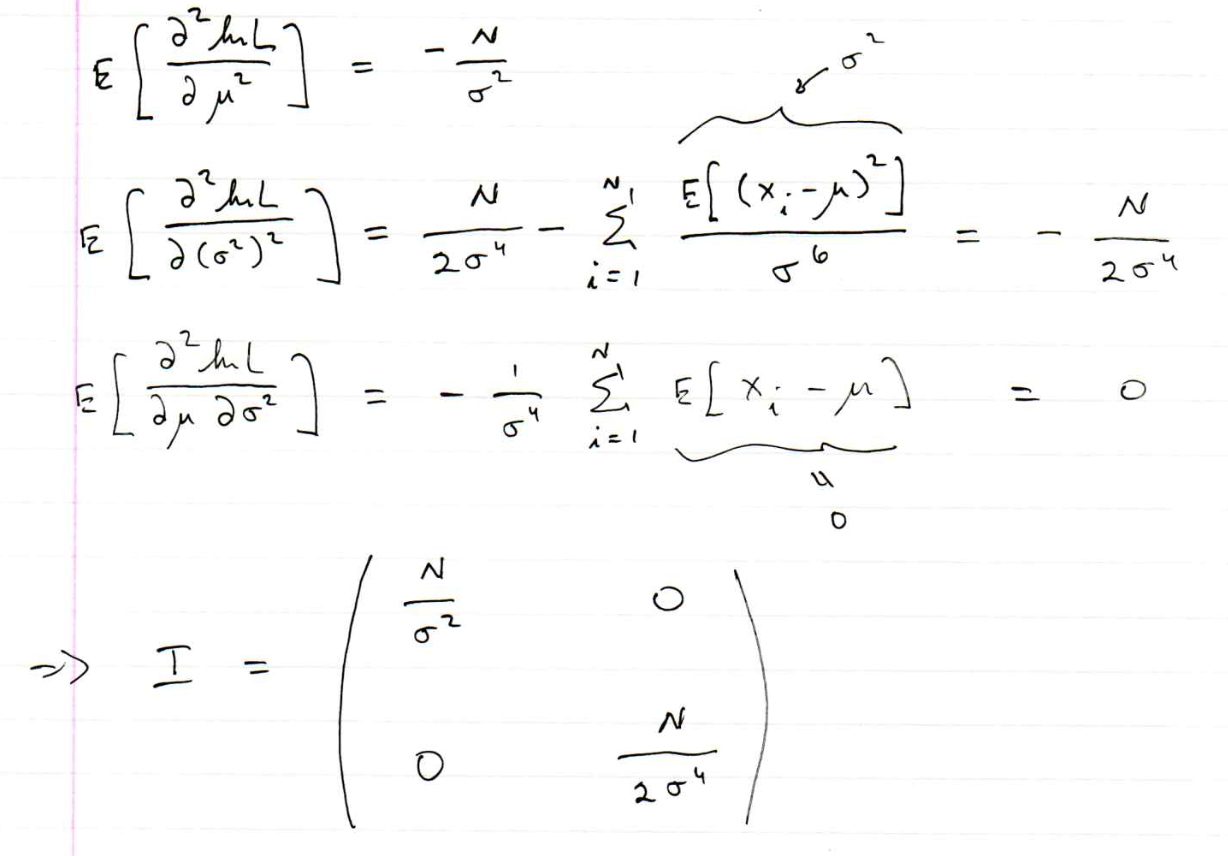 E[∂² ln L / ∂μ²] = - N/σ²
σ²
E[∂² ln L / ∂(σ²)²] = N/(2σ⁴) - Σ_{i=1}^{N} E[(x_i - μ)²]/σ⁶ = - N/(2σ⁴)
E[∂² ln L / ∂μ ∂σ²] = - 1/σ⁴ Σ_{i=1}^{N} E[x_i - μ] = 0
"
0
=> I = ( N/σ² 0
0 N/(2σ⁴) )